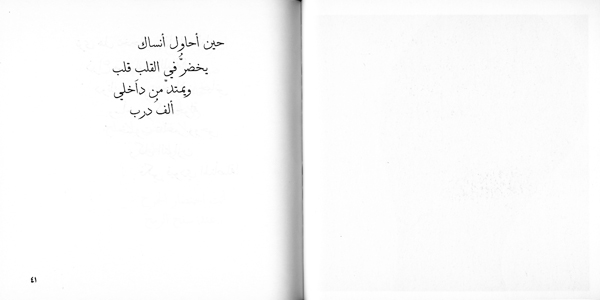 حين أحاول أنساك
يخضرُّ في القلب قلب
ويمتدْ من داخلي
ألفُ درب
٤١